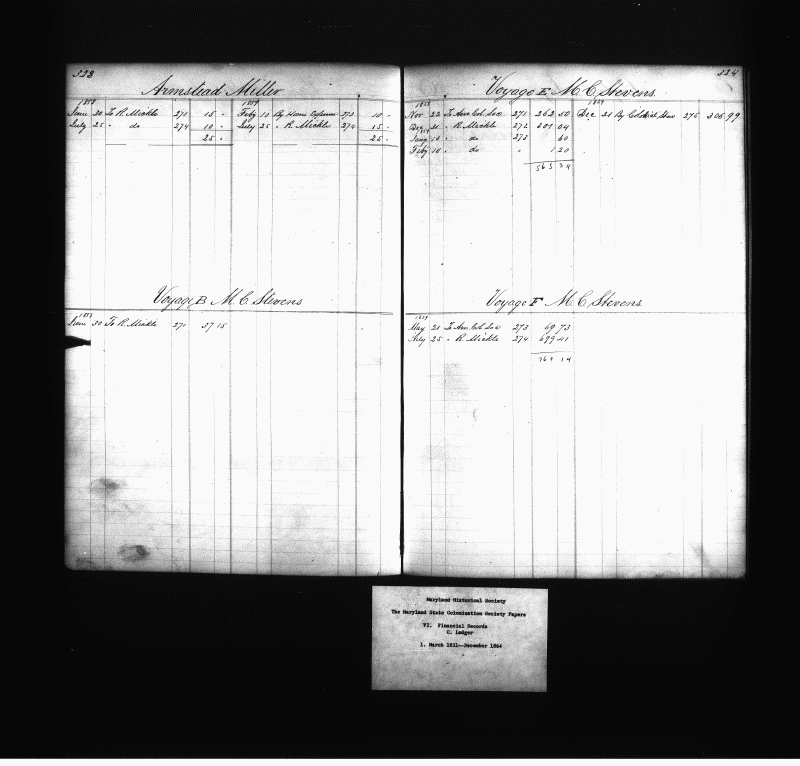 323
Armstead Miller
1858 1859
June 30 To R. Mickle 271 15 - Feby 10 By Ham 273 10 -
July 25 " do 274 10 - July 25 " R. Mickle 274 15 -
25 - 25 -
Voyage B M. C. Stevens
1858
June 30 To R. Mickle 271 37 15
324
Voyage E M. C. Stevens
1858 1859
Nov 22 To Am. Col. Soc 271 262 50 Dec 21 By 275 306.99
Dec 31 " R. Mickle 272 301 04
1859
Jany 10 " do 273 60
Feby 10 " do " 1 20
565 34
Voyage F M. C. Stevens
1859
May 21 To Am. Col. Soc 273 69 73
July 25 " R. Mickle 274 699 41
769 14
Maryland Historical Society
The Maryland State Colonization Society Papers
VI. Financial Records
C. Ledger
1. March 1831--December 1864